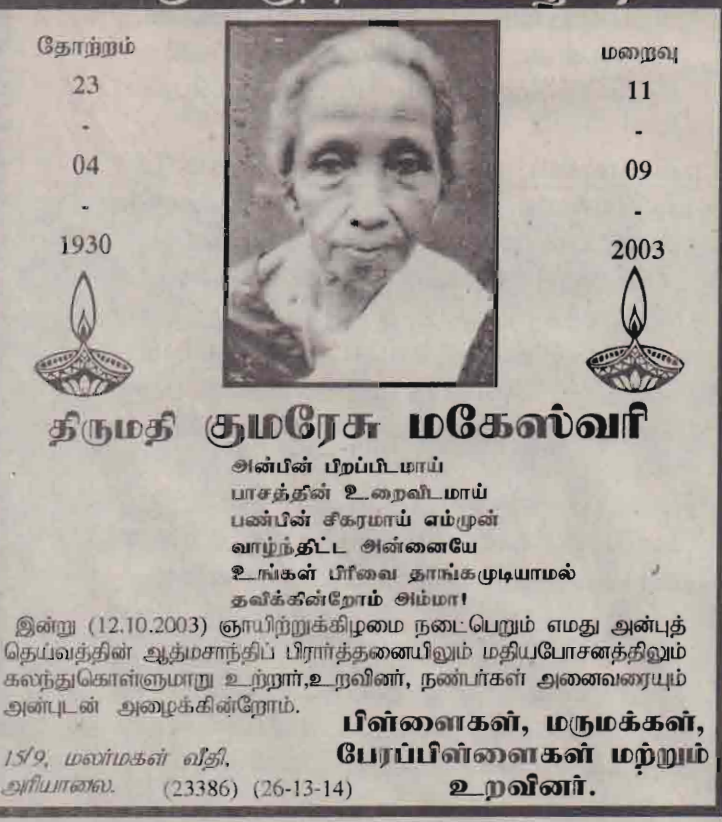 தோற்றம்
23
-
04
-
1930
மறைவு
11
-
09
-
2003
திருமதி குமரேசு மகேஸ்வரி
அன்பின் பிறப்பிடமாய்
பாசத்தின் உறைவிடமாய்
பண்பின் சிகரமாய் எம்முன்
வாழ்ந்திட்ட அன்னையே
உங்கள் பிரிவை தாங்கமுடியாமல்
தவிக்கின்றோம் அம்மா!
இன்று (12.10.2003) ஞாயிற்றுக்கிழமை நடைபெறும் எமது அன்புத்
தெய்வத்தின் ஆத்மசாந்திப் பிரார்த்தனையிலும் மதியபோசனத்திலும்
கலந்துகொள்ளுமாறு உற்றார்,உறவினர், நண்பர்கள் அனைவரையும்
அன்புடன் அழைக்கின்றோம்.
பிள்ளைகள், மருமக்கள்,
பேரப்பிள்ளைகள் மற்றும்
உறவினர்.
15/9, மலர்மகள் வீதி,
அரியாலை. (23386) (26-13-14)